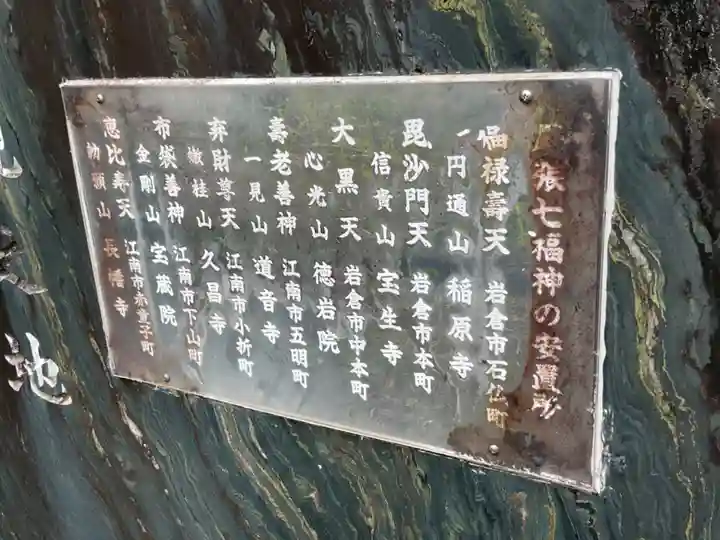 張七福神の安置所
福禄壽天 岩倉市石仏町
円通山 稲原寺
毘沙門天 岩倉市本町
信貴山 宝生寺
大黒天 岩倉市中本町
心光山 徳岩院
壽老善神 江南市五明町
一見山 道音寺
弁財尊天 江南市小折町
嫩桂山 久昌寺
布袋善神 江南市下山町
金剛山 宝蔵院
恵比寿天 江南市赤童子町
山 長幡寺
地